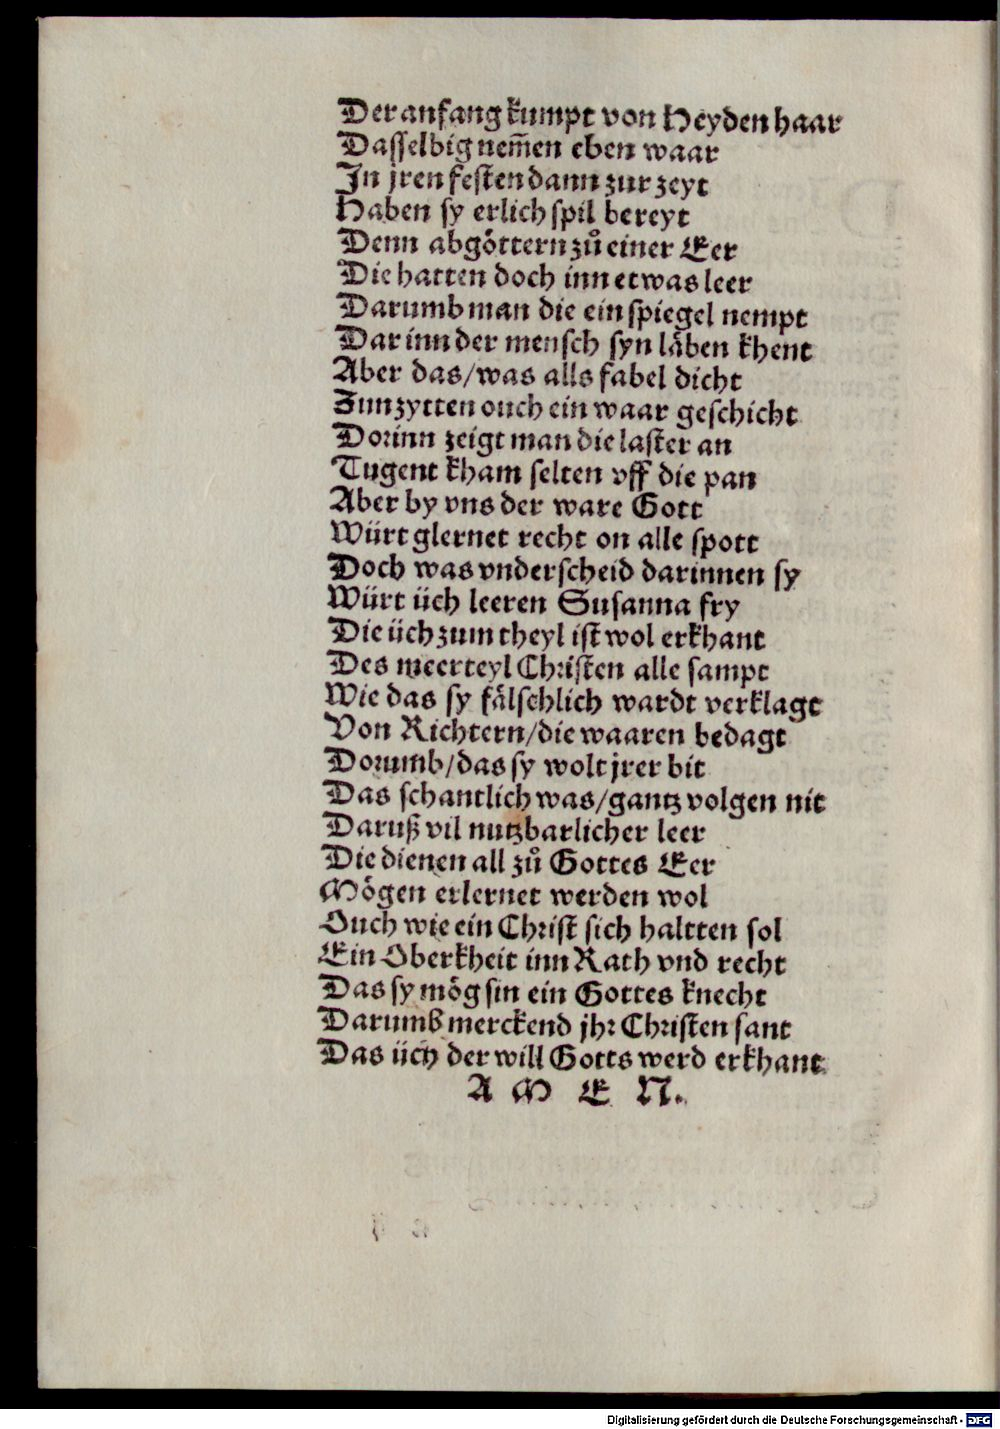 Der anfang kumpt von Heyden haar
Dasselbig nem̄en eben waar
In jren festen dann zur zeyt
Haben sy erlich spil bereyt
Denn abgöttern zů einer Eer
Die hatten doch inn etwas leer
Darumb man die ein spiegel nempt
Dar inn der mensch syn läben khent
Aber das/was alls fabel dicht
Zun zytten ouch ein waar geschicht
Dorinn zeigt man die laster an
Tugent kham selten vff die pan
Aber by vns der ware Gott
Würt glernet recht on alle spott
Doch was vnderscheid darinnen sy
Würt üch leeren Susanna fry
Die üch zum theyl ist wol erkhant
Des meerteyl Christen alle sampt
Wie das sy fälschlich wardt verklagt
Von Richtern/die waaren bedagt
Dorumb/das sy wolt jrer bit
Das schantlich was/gantz volgen nit
Daruß vil nutzbarlicher leer
Die dienen all zů Gottes Eer
Mögen erlernet werden wol
Ouch wie ein Christ sich haltten sol
Ein Oberkheit inn Rath vnd recht
Das sy mög sin ein Gottes knecht
Darumb merckend jhr Christen sant
Das üch der will Gotts werd erkhant.
A M E N.
Digitalisierung gefördert durch die Deutsche Forschungsgemeinschaft - DFG